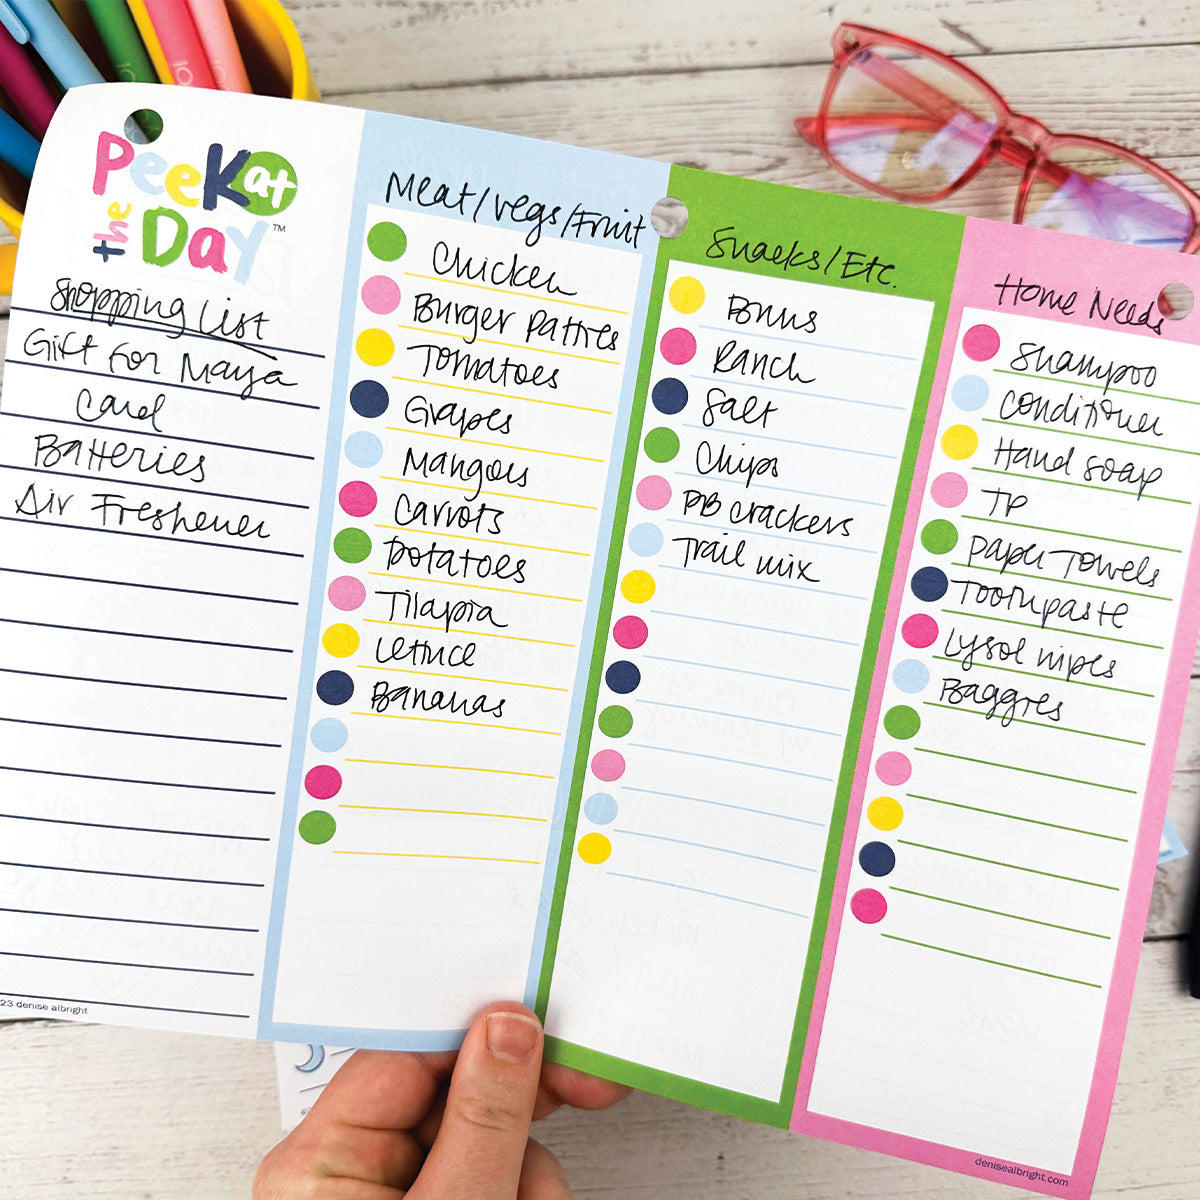 Peek at
the Day™
Shopping List
Gift for Maya
Card
Batteries
Air Freshener
23 denise albright
Meat/Vegs/Fruit
Chicken
Burger Patties
Tomatoes
Grapes
Mangoes
Carrots
Potatoes
Tilapia
Lettuce
Bananas
Snacks/Etc.
Ranch
Salt
Chips
PB crackers
Trail mix
Home Needs
Shampoo
Conditioner
Hand soap
TP
Paper Towels
Toothpaste
Lysol wipes
Baggies
denisealbright.com